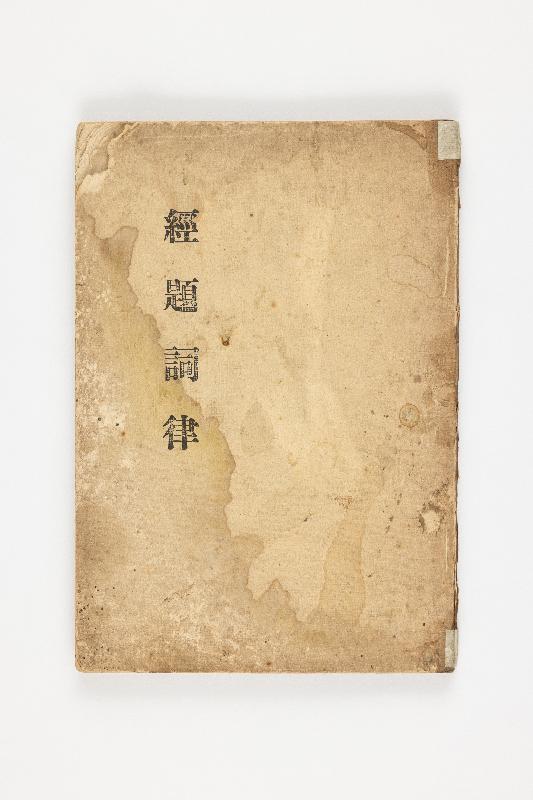 經題詞律